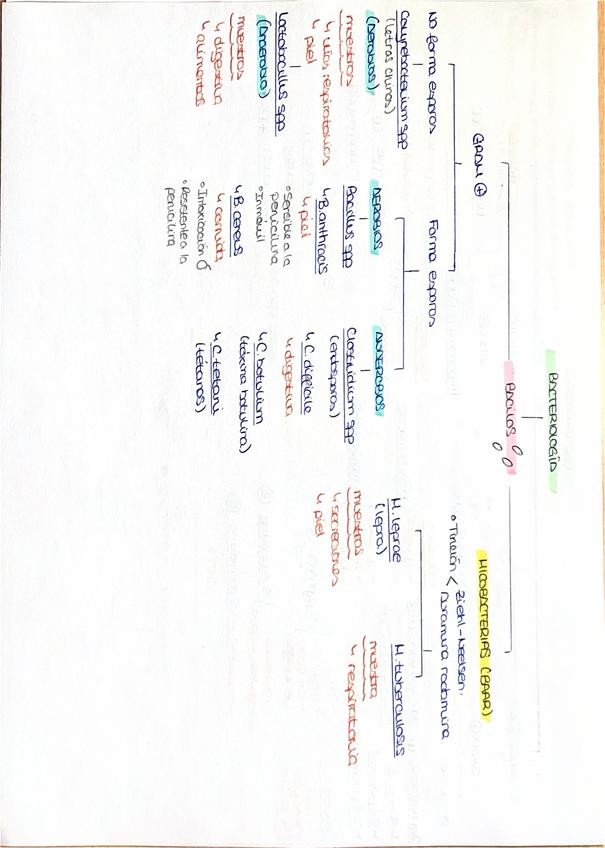 BACTERIOLOGÍA
BACILOS
GRAM +
No forma esporas
Corynebacterium spp
(letras chinas)
(AEROBIOS)
muestras
↳ vías respiratorias
↳ piel
Lactobacillus spp
(Anaerobio)
muestras
↳ digestiva
↳ alimentos
Forma esporas
AEROBIOS
Bacillus spp
↳ B. anthracis
↳ piel
° Sensible a la
penicilina
° Inmóvil
↳ B. cereus
↳ comida
° Intoxicación
° Resistente a la
penicilina
ANAEROBIOS
Clostridium spp
↳ C. difficile
↳ digestiva
↳ C. botulium
(toxina botulina)
↳ C. tetani
(tétanos)
MICOBACTERIAS (BAAR)
° Tinción < Ziehl-Neelsen
Auramina rodamina
M. leprae
(lepra)
muestras
↳ secreciones
↳ piel
M. tuberculosis
muestra
↳ respiratoria